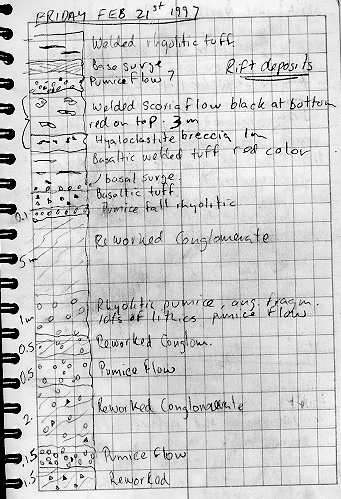 FRIDAY FEB 21st 1997
Welded rhyolitic tuff
Base surge
Pumice flow?
Rift deposits
Welded Scoria flow black at bottom
red on top. 3 m
Hyaloclastite breccia 1m
Basaltic welded tuff red color
basal surge
Basaltic tuff
0.1
Pumice fall rhyolitic
Reworked Conglomerate
5 m
Rhyolitic pumice, ang. fragm.
1m
lots of lithics pumice flow
0.5
Reworked Conglom.
0.5
Pumice flow
2.
Reworked Conglomerate
.15
Pumice flow
1.5
Reworked